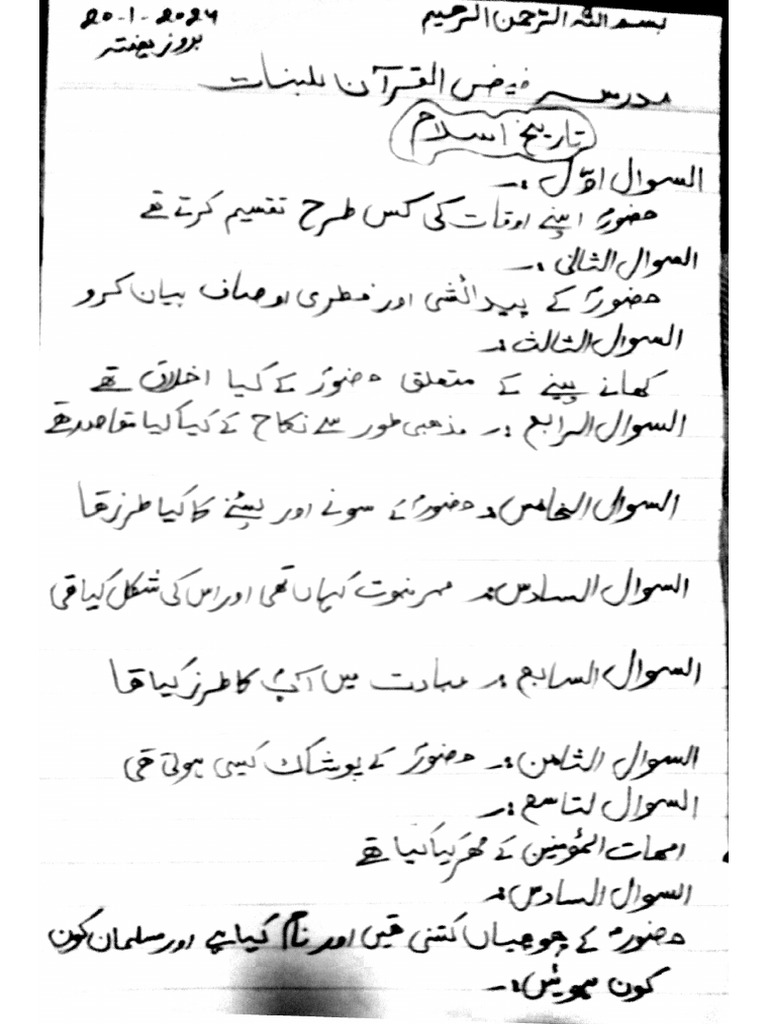 بسم اللہ الرحمن الرحیم
20-1-2024
بروز ہفتہ
مدرسہ فیض القرآن للبنات
تاریخ اسلام
السوال اول :۔
حضورؐ اپنے اوقات کی کس طرح تقسیم کرتے تھے
السوال الثانی :۔
حضورؐ کے پیدائشی اور فطری اوصاف بیان کرو
السوال الثالث :۔
کھانے پینے کے متعلق حضورؐ کے کیا اخلاق تھے
السوال الرابع :۔ مذھبی طور سے نکاح کے کیا کیا مقاصد تھے
السوال الخامس :۔ حضورؐ کے سونے اور بیٹنے کا کیا طرز تھا
السوال السادس :۔ مہر نبوت کہاں تھی اور اس کی شکل کیا تھی
السوال السابع :۔ عبادت میں آپؐ کا طرز کیا تھا
السوال الثامن :۔ حضورؐ کے پوشاک کیسی ہوتی تھی
السوال لتاسع :۔
امھات المؤمنین کے مھر کیا کیا تھے
السوال السادس :۔
حضورؐ کے پھوپھیاں کتنی تھیں اور نام کیا ہے اور مسلمان کون
کون ہویئں :۔